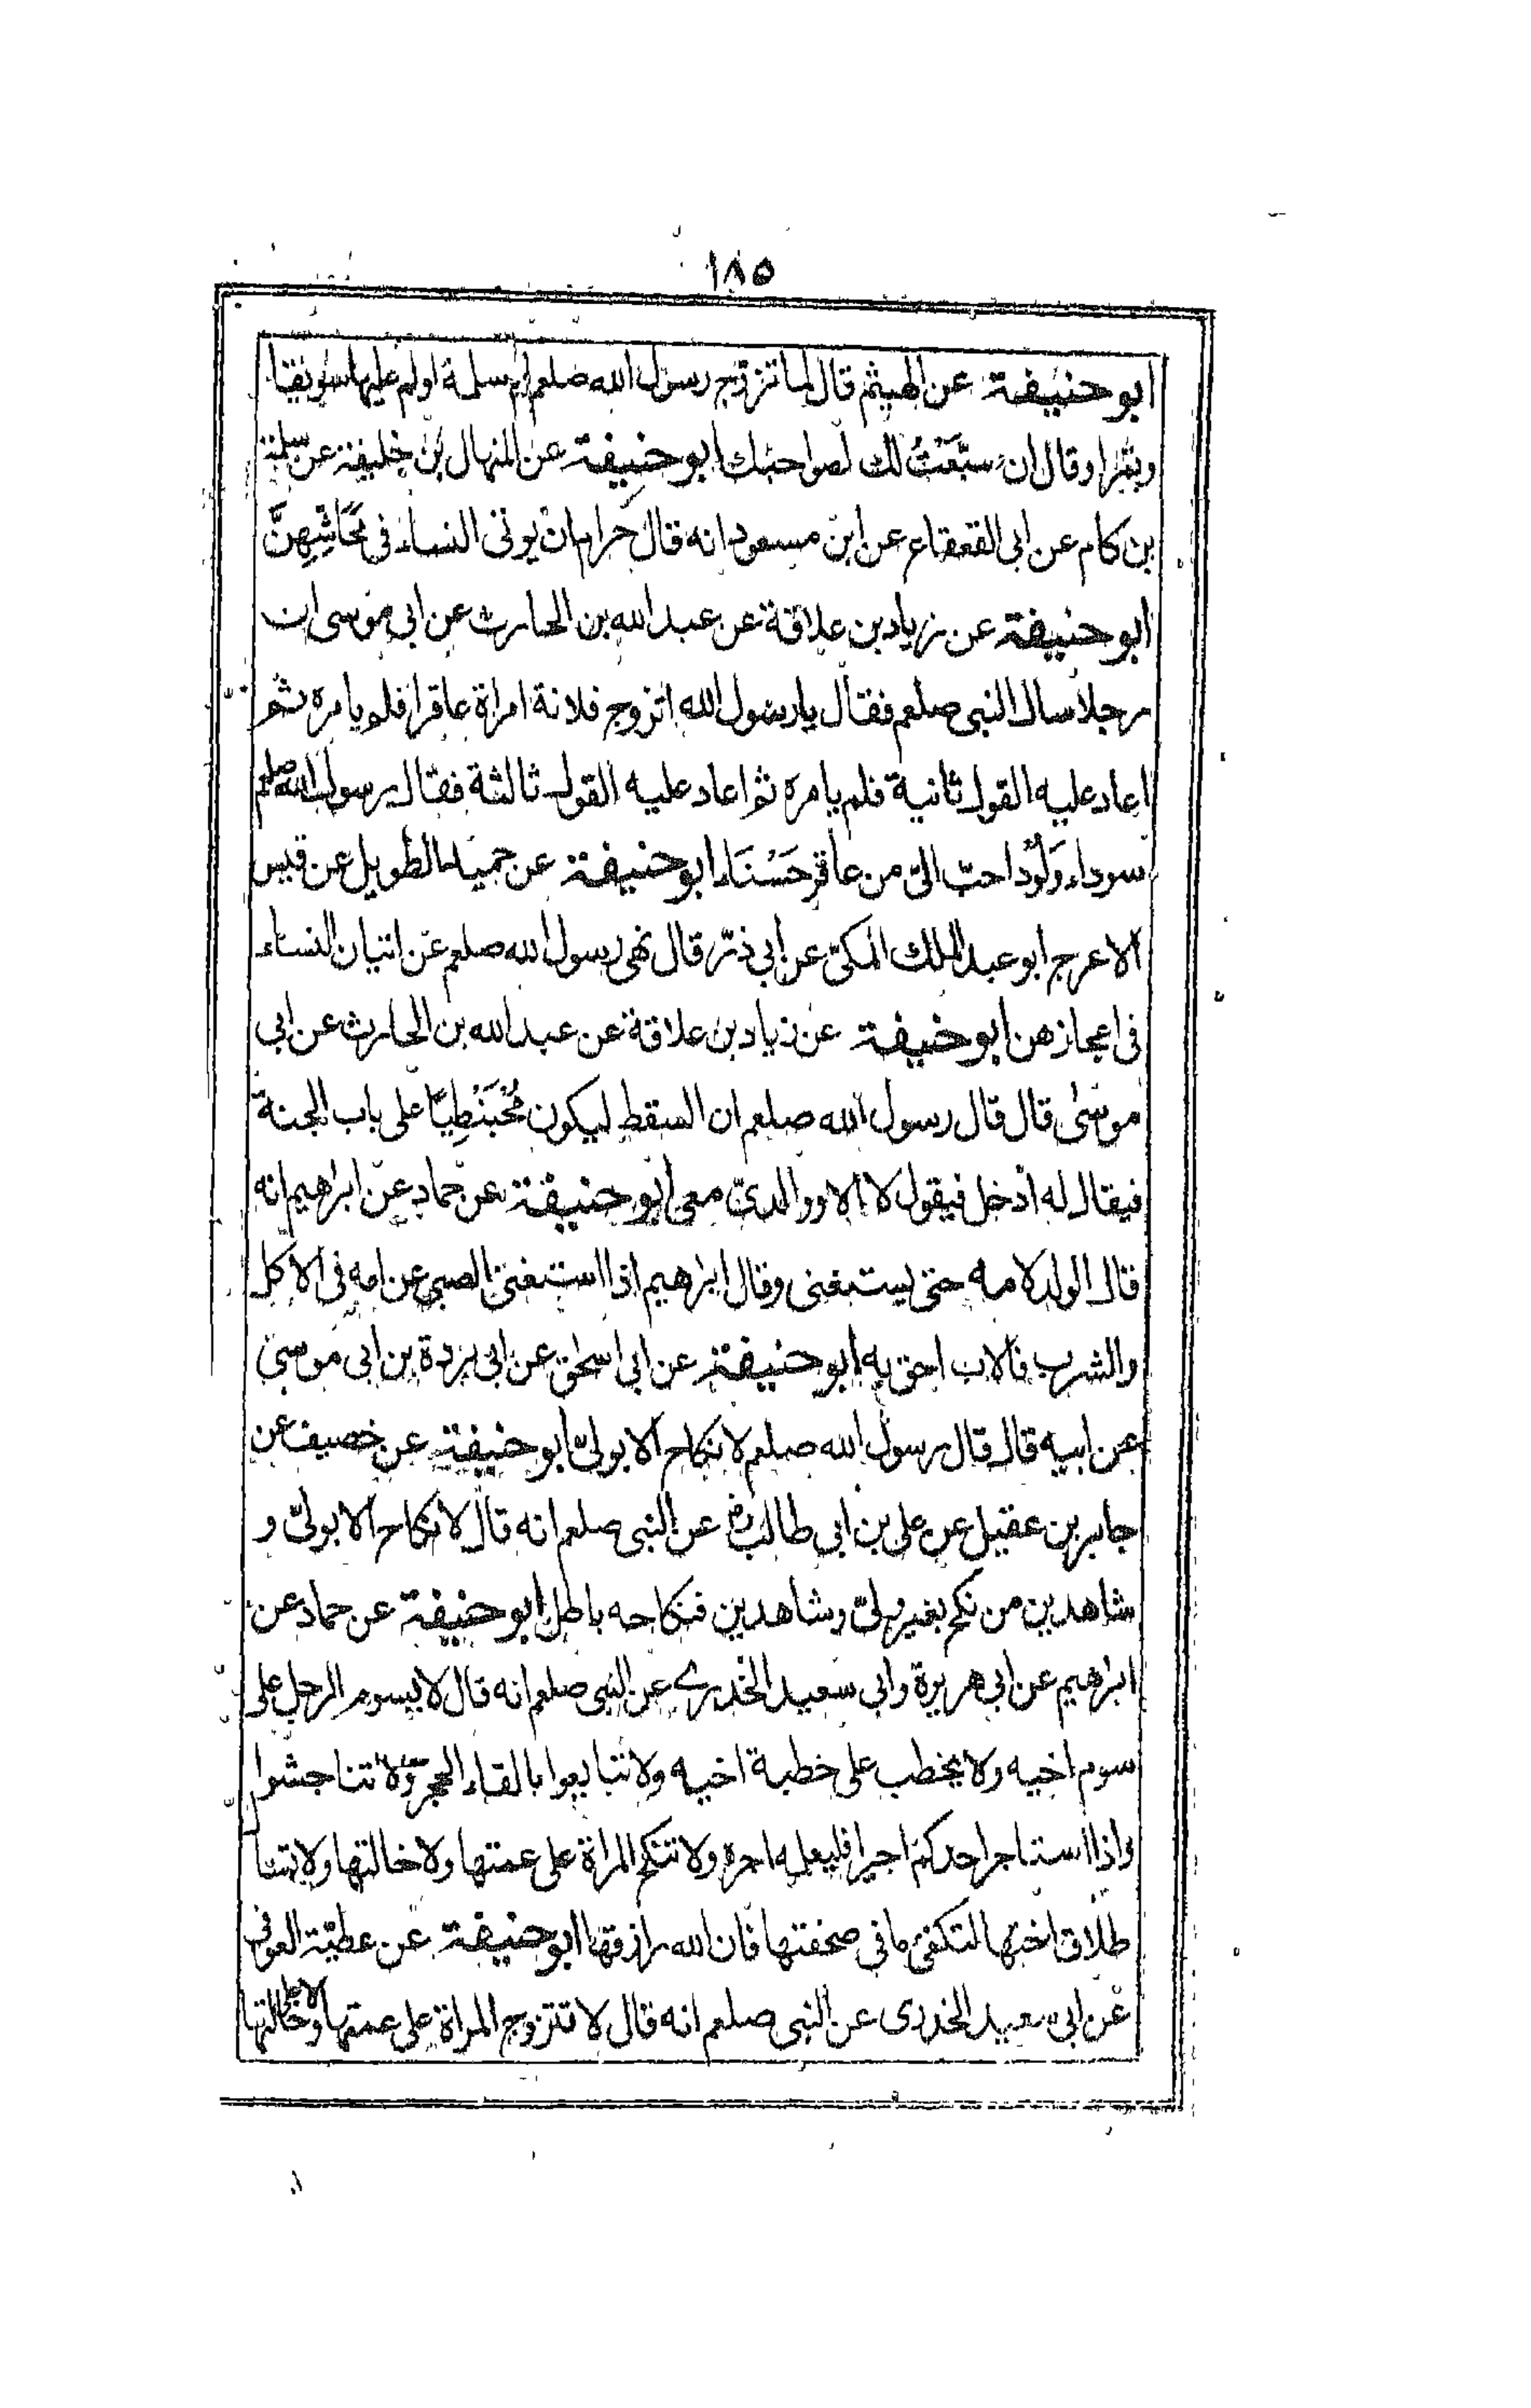 ١٨٥
ابو حنيفة عن الهيثم قال لما تزوج رسول الله صلعم ام سلمة اولم عليها سويقا
وتمرا وقال ان سبّعتُ لك لصواحبك ابو حنيفة عن المنهال بن خليفة عن سلمة
بن كام عن ابى القعقاع عن ابن مسعود انه قال حرام ان يوتى النساء فى مَحَاشِهِنَّ
ابو حنيفة عن زياد بن علاقة عن عبد الله بن الحارث عن ابى موسى ان
رجلا سال النبى صلعم فقال يا رسول الله اتزوج فلانة امراة عاقرا فلم يامره ثم
اعاد عليه القول ثانية فلم يامره ثم اعاد عليه القول ثالثة فقال رسول الله صلعم
سوداء وَلُوْد احبّ الىّ من عاقر حَسْنَاء ابو حنيفة عن حميد الطويل عن قيس
الاعرج ابو عبد الملك المكىّ عن ابى ذرّ قال نهى رسول الله صلعم عن اتيان النساء
فى اعجازهن ابو حنيفة عن زياد بن علاقة عن عبد الله بن الحارث عن ابى
موسىٰ قال قال رسول الله صلعم ان السقط ليكون مُحْبَنْطِيًا على باب الجنة
فيقال له ادخل فيقول لا الا ووالدىّ معى ابو حنيفة عن حماد عن ابراهيم انه
قال الولد لامه حتى يستغنى وقال ابراهيم اذا استغنى الصبى عن امه فى الاكل
والشرب فالاب احق به ابو حنيفة عن ابى اسحٰق عن ابى بردة بن ابى موسىٰ
عن ابيه قال قال رسول الله صلعم لا نكاح الا بولىّ ابو حنيفة عن خصيف عن
جابر بن عقيل عن على بن ابى طالب رض عن النبى صلعم انه قال لا نكاح الا بولىّ و
شاهدين من نكح بغير ولىّ وشاهدين فنكاحه باطل ابو حنيفة عن حماد عن
ابرهيم عن ابى هريرة وابى سعيد الخدرى عن النبى صلعم انه قال لا يسوم الرجل على
سوم اخيه ولا يخطب على خطبة اخيه ولا تبايعوا بالقاء الحجر ولا تناجشوا
واذا استاجر احدكم اجيرا فليعلمه اجره ولا تنكح المراة على عمتها ولا خالتها ولا تسا
طلاق اختها لتكفئ ما فى صحفتها فان الله رازقها ابو حنيفة عن عطيّة العوفى
عن ابى سعيد الخدرى عن النبى صلعم انه قال لا تتزوج المراة على عمتها ولا على خالتها